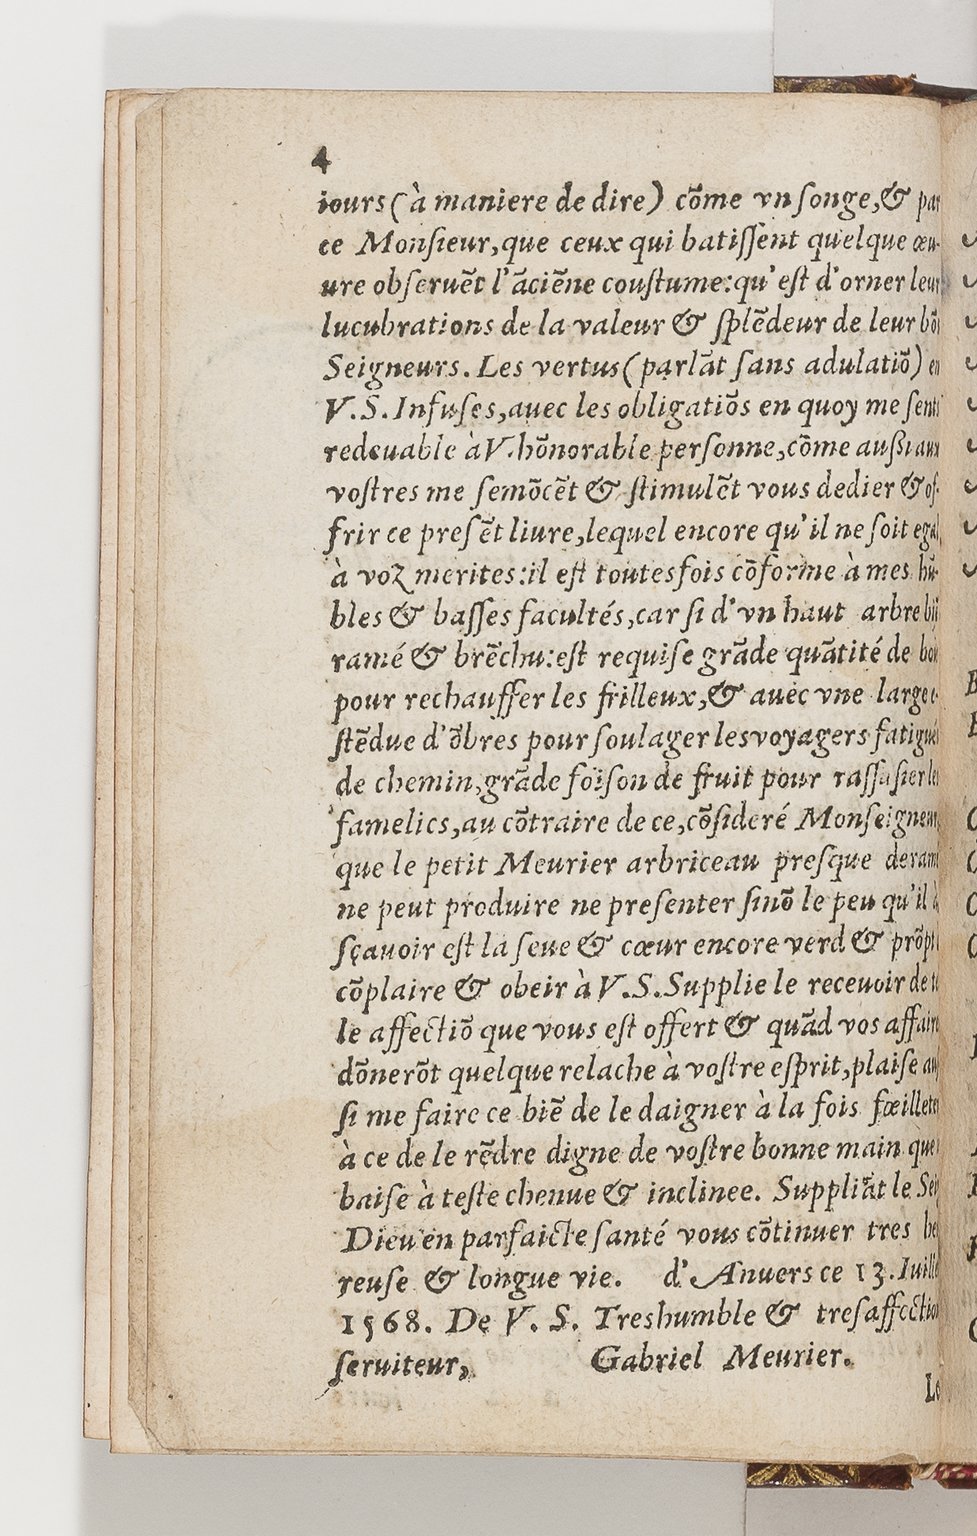 4
iours (à maniere de dire) cõme vn ſonge, & par
ce Monſieur, que ceux qui batiſſent quelque œu-
ure obſeruẽt l'ãciẽne couſtume: qu'eſt d'orner leur
lucubrations de la valeur & ſplẽdeur de leur bõs
Seigneurs. Les vertus (parlãt ſans adulatiõ) en
V. S. Infuſes, auec les obligatiõs en quoy me ſenti
redeuable à V. hõnorable perſonne, cõme außi aux
voſtres me ſemõcẽt & ſtimulẽt vous dedier & of-
frir ce preſẽt liure, lequel encore qu'il ne ſoit egal
à voz merites: il eſt toutesfois cõforme à mes hũ-
bles & baſſes facultés, car ſi d'vn haut arbre biẽ
ramé & brẽchu: eſt requiſe grãde quãtité de bois
pour rechauffer les frilleux, & auec vne large e-
ſtẽdue d'õbres pour ſoulager les voyagers fatigués
de chemin, grãde foiſon de fruit pour raſſaſier les
famelics, au cõtraire de ce, cõſideré Monſeigneur,
que le petit Meurier arbriceau preſque deramé
ne peut produire ne preſenter ſinõ le peu qu'il à
ſçauoir eſt la ſeue & cœur encore verd & prõpt
cõplaire & obeir à V. S. Supplie le receuoir de
le affectiõ que vous eſt offert & quãd vos affaires
dõnerõt quelque relache à voſtre eſprit, plaiſe auſ
ſi me faire ce biẽ de le daigner à la fois fœilleter
à ce de le rẽdre digne de voſtre bonne main que
baiſe à teſte chenue & inclinee. Suppliãt le Sei
Dieu en parfaicte ſanté vous cõtinuer tres he
reuſe & longue vie. d'Anuers ce 13. Iuille
1568. De V. S. Treshumble & treſaffection
ſeruiteur, Gabriel Meurier.